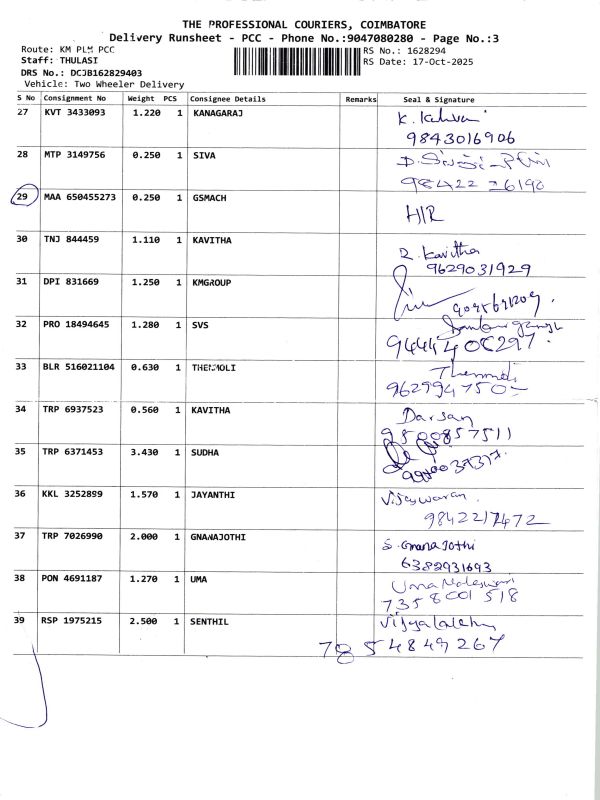 THE PROFESSIONAL COURIERS, COIMBATORE
Delivery Runsheet - PCC - Phone No.:9047080280 - Page No.:3
Route: KM PLM PCC
RS No.: 1628294
Staff: THULASI
RS Date: 17-Oct-2025
DRS No.: DCJB162829403
Vehicle: Two Wheeler Delivery
S No Consignment No Weight PCS Consignee Details Remarks Seal & Signature
27 KVT 3433093 1.220 1 KANAGARAJ
9843016906
28 MTP 3149756 0.250 1 SIVA
98422 26190
29 MAA 650455273 0.250 1 GSMACH H/R
30 TNJ 844459 1.110 1 KAVITHA R. Kavitha
9629031929
31 DPI 831669 1.250 1 KMGROUP
32 PRO 18494645 1.280 1 SVS
33 BLR 516021104 0.630 1 THENMOLI
34 TRP 6937523 0.560 1 KAVITHA Darsan
9500857511
35 TRP 6371453 3.430 1 SUDHA
36 KKL 3252899 1.570 1 JAYANTHI Vijeswaran.
9842217472
37 TRP 7026990 2.000 1 GNANAJOTHI S. Gnana Jothi
6382931693
38 PON 4691187 1.270 1 UMA Uma Maheswari
7358001518
39 RSP 1975215 2.500 1 SENTHIL
7854849267